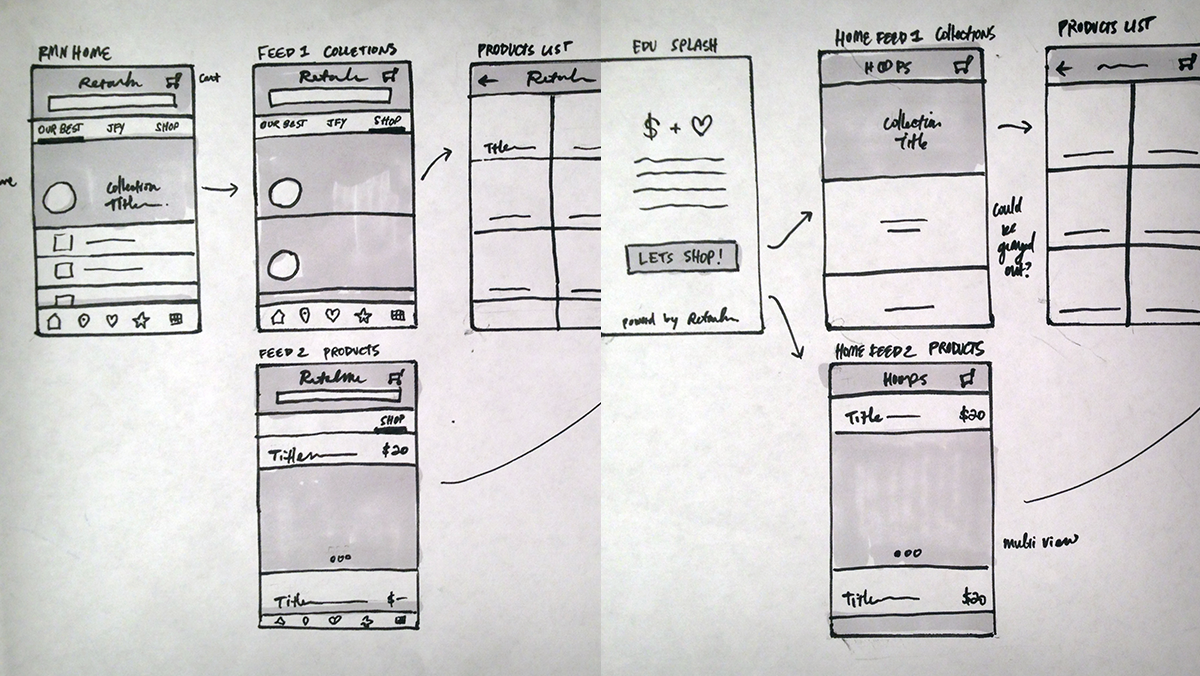 RMN HOME
Cart
OUR BEST JFY SHOP
Collection
Title
FEED 1 COLLETIONS
OUR BEST JFY SHOP
PRODUCTS LIST
Title
FEED 2 PRODUCTS
SHOP
Title $20
Title $
EDU SPLASH
$ +
LETS SHOP!
powered by
HOME FEED 1 Collections
HOOPS
Collection
Title
Could
be
grayed
out?
PRODUCTS LIST
HOME FEED 2 PRODUCTS
HOOPS
Title $20
multi view
Title $20